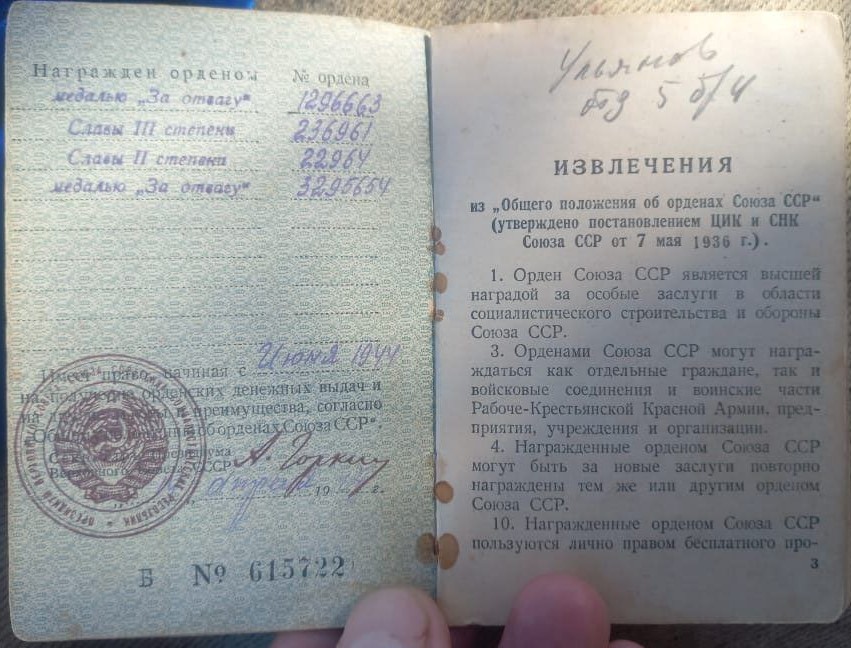 Награжден орденом № ордена
медалью „За отвагу“ 1296663
Славы III степени 236961
Славы II степени 22964
медалью „За отвагу“ 3295654
Имеет право, начиная с Июня 1944
на получение орденских денежных выдач и
и преимущества, согласно
об орденах Союза ССР“.
Верховного Совета СССР А. Горкин
апреля 19 г.
Б № 615722
Ульянов
5
ИЗВЛЕЧЕНИЯ
из „Общего положения об орденах Союза ССР“
(утверждено постановлением ЦИК и СНК
Союза ССР от 7 мая 1936 г.).
1. Орден Союза ССР является высшей
наградой за особые заслуги в области
социалистического строительства и обороны
Союза ССР.
3. Орденами Союза ССР могут награ-
ждаться как отдельные граждане, так и
войсковые соединения и воинские части
Рабоче-Крестьянской Красной Армии, пред-
приятия, учреждения и организации.
4. Награжденные орденом Союза ССР
могут быть за новые заслуги повторно
награждены тем же или другим орденом
Союза ССР.
10. Награжденные орденом Союза ССР
пользуются лично правом бесплатного про-
3